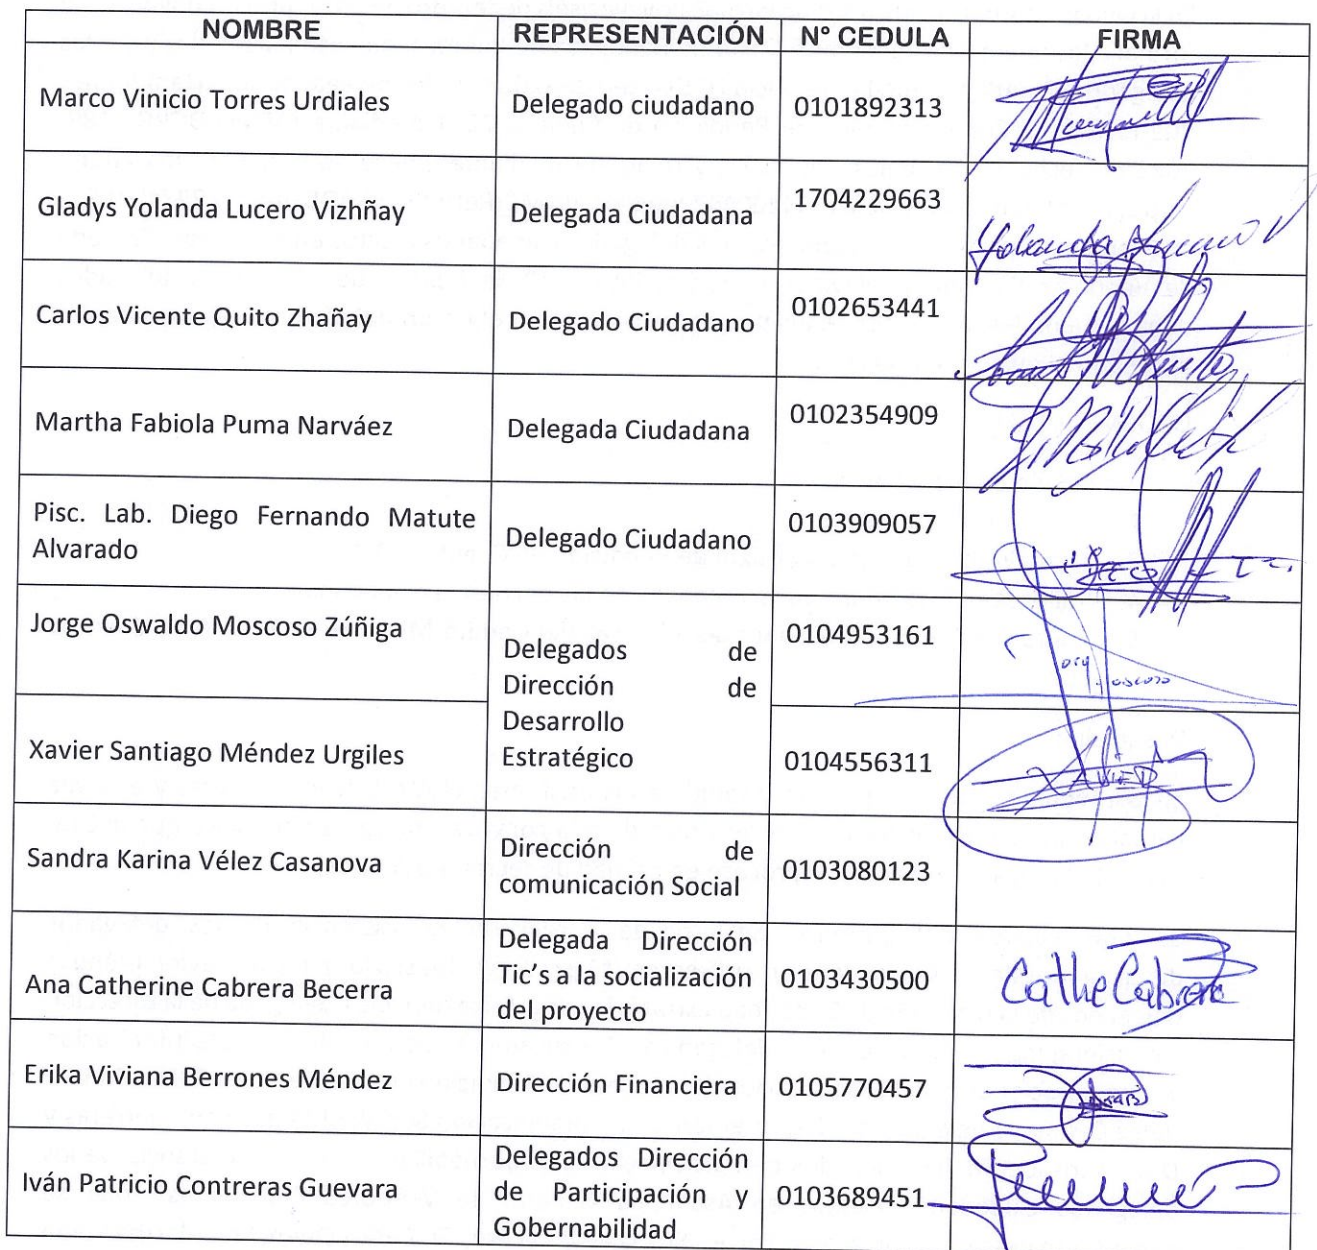 NOMBRE REPRESENTACIÓN N° CEDULA FIRMA
Marco Vinicio Torres Urdiales Delegado ciudadano 0101892313
Gladys Yolanda Lucero Vizhñay Delegada Ciudadana 1704229663 Yolanda Lucero V
Carlos Vicente Quito Zhañay Delegado Ciudadano 0102653441
Martha Fabiola Puma Narváez Delegada Ciudadana 0102354909
Pisc. Lab. Diego Fernando Matute
Alvarado
Delegado Ciudadano 0103909057
Jorge Oswaldo Moscoso Zúñiga 0104953161 Jorg Moscoso
Delegados de
Dirección de
Desarrollo
Estratégico
Xavier Santiago Méndez Urgiles 0104556311 XAVIER
Sandra Karina Vélez Casanova
Dirección de
comunicación Social
0103080123
Ana Catherine Cabrera Becerra
Delegada Dirección
Tic's a la socialización
del proyecto
0103430500 Cathe Cabrera
Erika Viviana Berrones Méndez Dirección Financiera 0105770457
Iván Patricio Contreras Guevara
Delegados Dirección
de Participación y
Gobernabilidad
0103689451